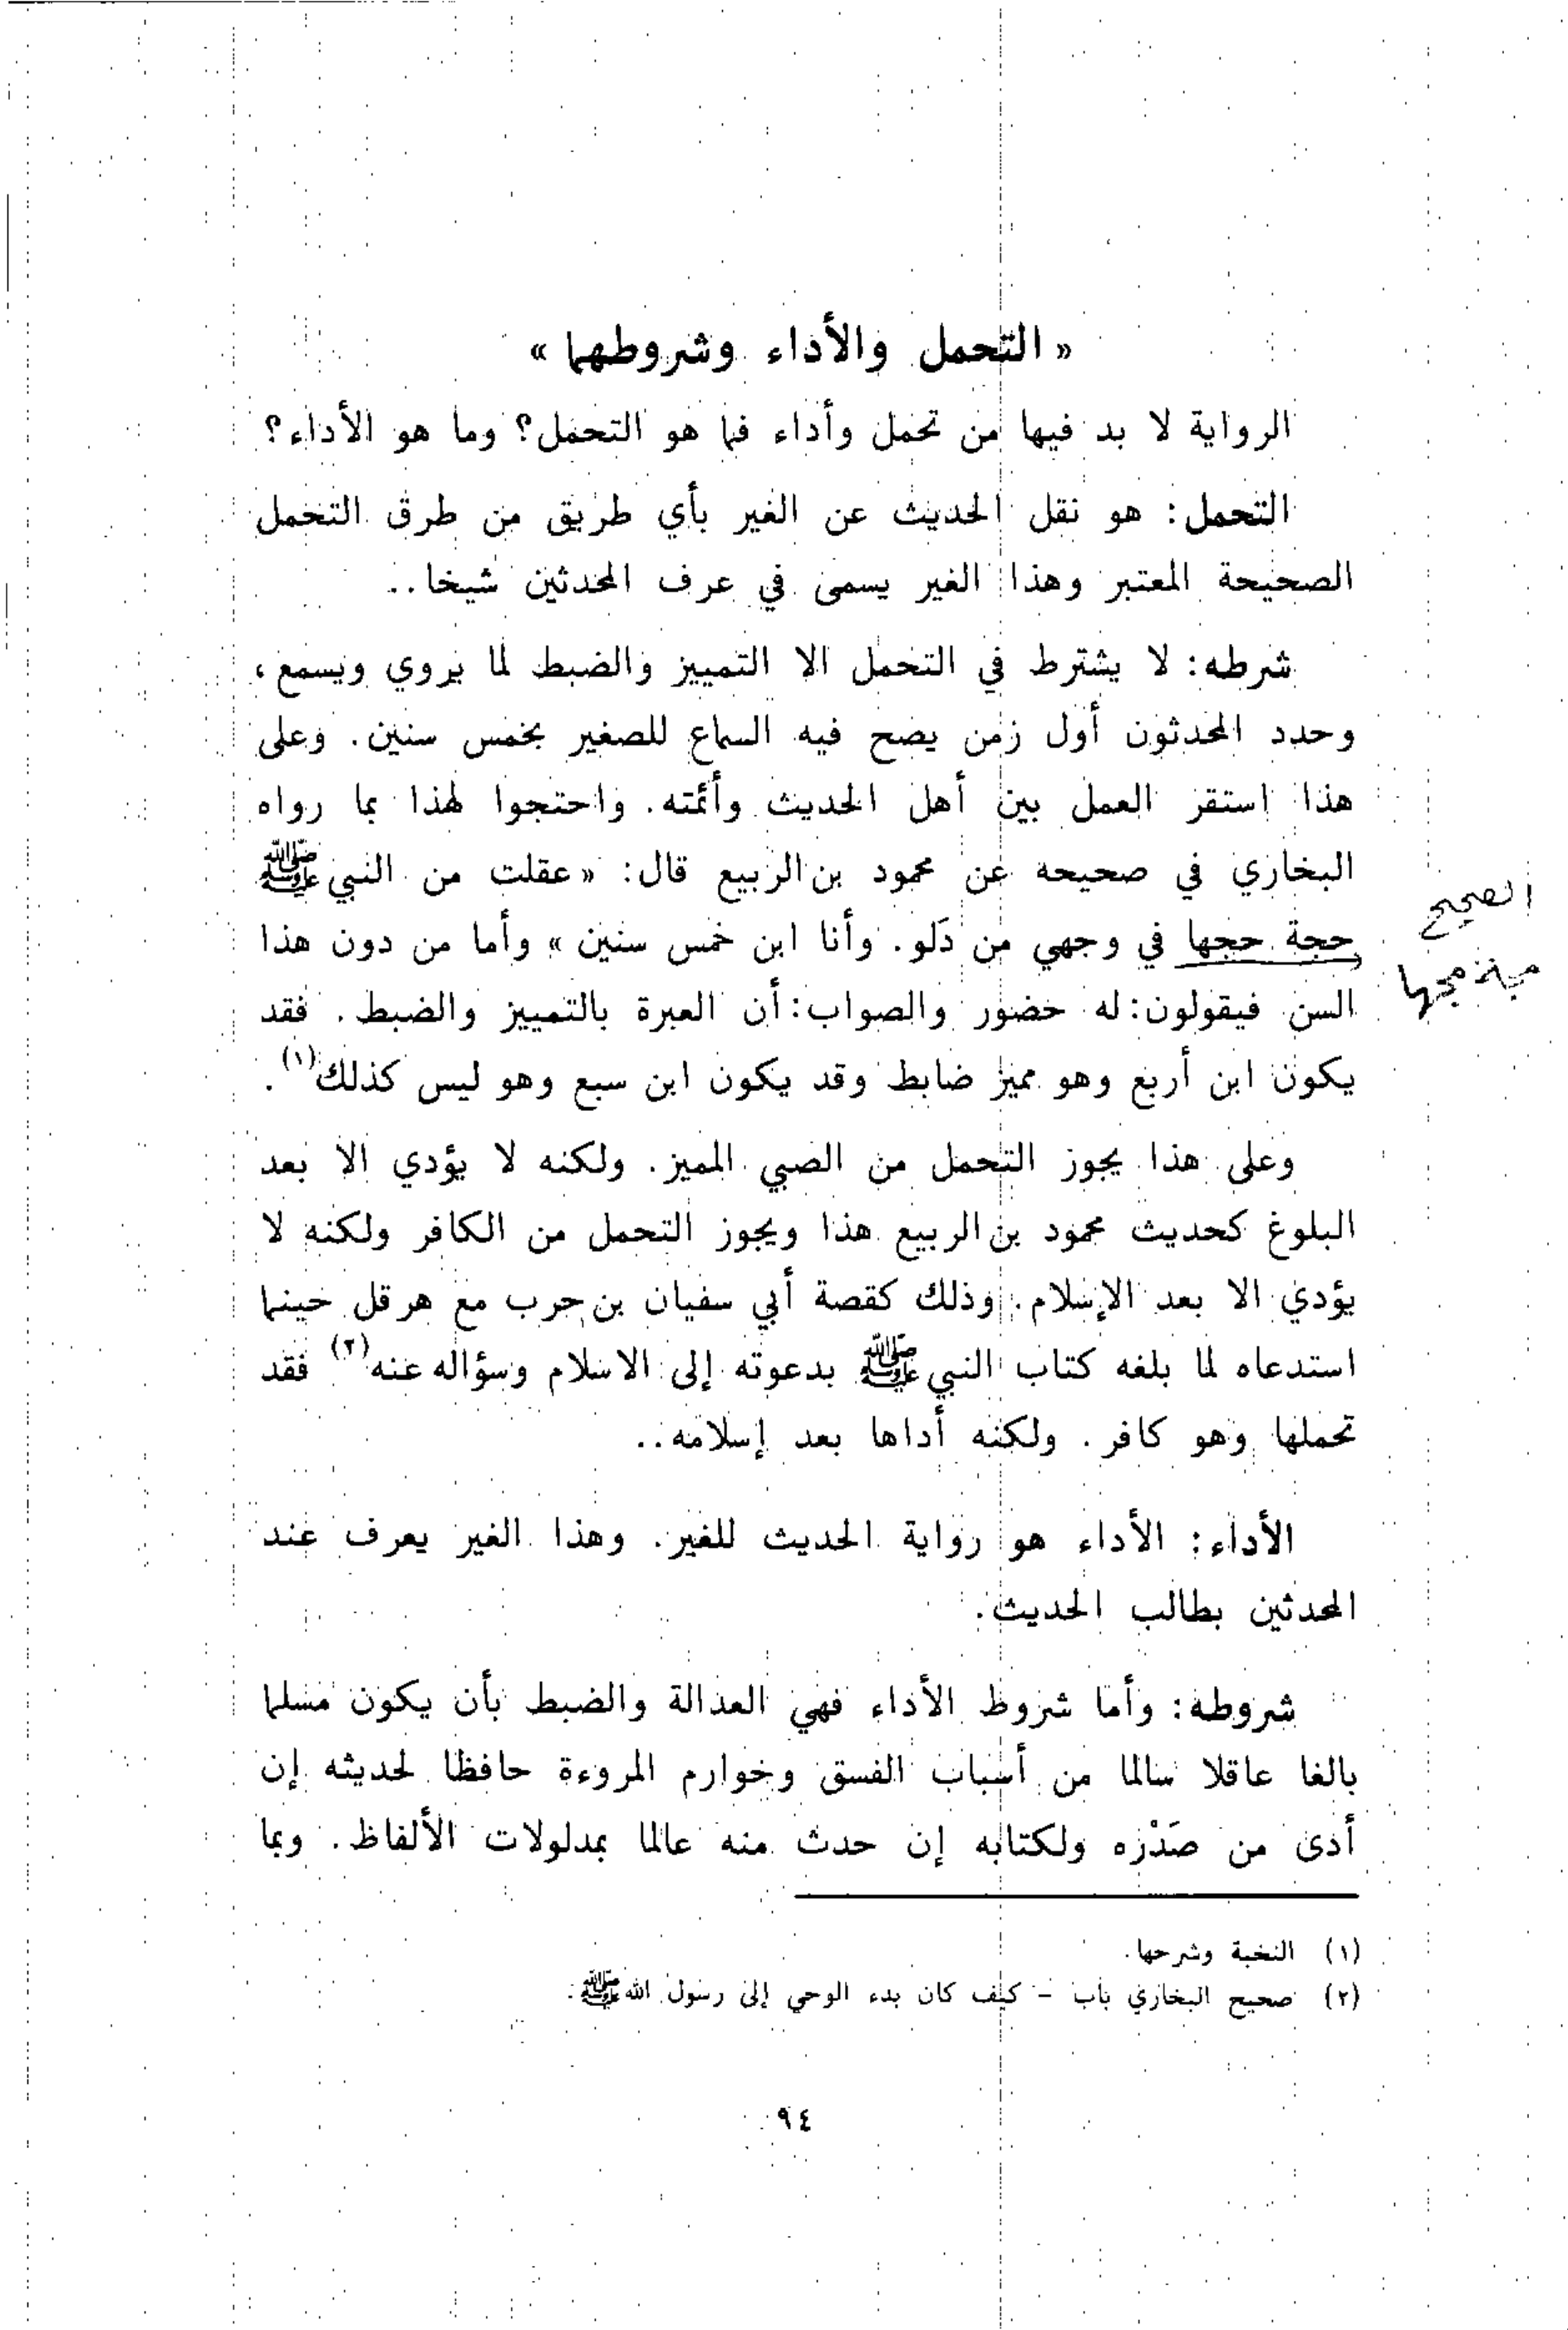 « التحمل والأداء وشروطهما »
الرواية لا بد فيها من تحمل وأداء فما هو التحمل؟ وما هو الأداء؟
التحمل: هو نقل الحديث عن الغير بأي طريق من طرق التحمل
الصحيحة المعتبر وهذا الغير يسمى في عرف المحدثين شيخا..
شرطه: لا يشترط في التحمل الا التمييز والضبط لما يروي ويسمع،
وحدد المحدثون أول زمن يصح فيه السماع للصغير بخمس سنين. وعلى
هذا استقر العمل بين أهل الحديث وأئمته. واحتجوا لهذا بما رواه
البخاري في صحيحه عن محمود بن الربيع قال: « عقلت من النبي ﷺ
حجة حجها في وجهي من دَلو. وأنا ابن خمس سنين » وأما من دون هذا
الصحيح
مجها
السن فيقولون: له حضور والصواب: أن العبرة بالتمييز والضبط. فقد
يكون ابن أربع وهو مميز ضابط وقد يكون ابن سبع وهو ليس كذلك(١).
وعلى هذا يجوز التحمل من الصبي المميز. ولكنه لا يؤدي الا بعد
البلوغ كحديث محمود بن الربيع هذا ويجوز التحمل من الكافر ولكنه لا
يؤدي الا بعد الإسلام. وذلك كقصة أبي سفيان بن حرب مع هرقل حينما
استدعاه لما بلغه كتاب النبي ﷺ بدعوته إلى الاسلام وسؤاله عنه(٢) فقد
تحملها وهو كافر. ولكنه أداها بعد إسلامه..
الأداء: الأداء هو رواية الحديث للغير. وهذا الغير يعرف عند
المحدثين بطالب الحديث.
شروطه: وأما شروط الأداء فهي العدالة والضبط بأن يكون مسلما
بالغا عاقلا سالما من أسباب الفسق وخوارم المروءة حافظا لحديثه إن
أدى من صَدْره ولكتابه إن حدث منه عالما بمدلولات الألفاظ. وبما
(١) النخبة وشرحها.
(٢) صحيح البخاري باب - كيف كان بدء الوحي إلى رسول الله ﷺ.
٩٤